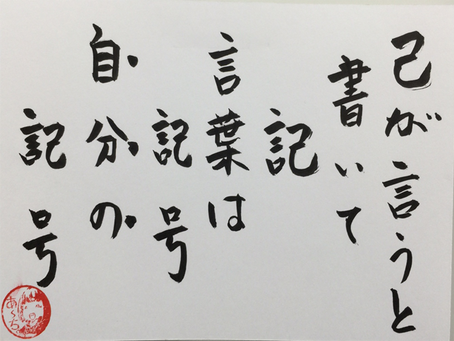 己が言うと
書いて
記
言葉は
記号
自分の
記号